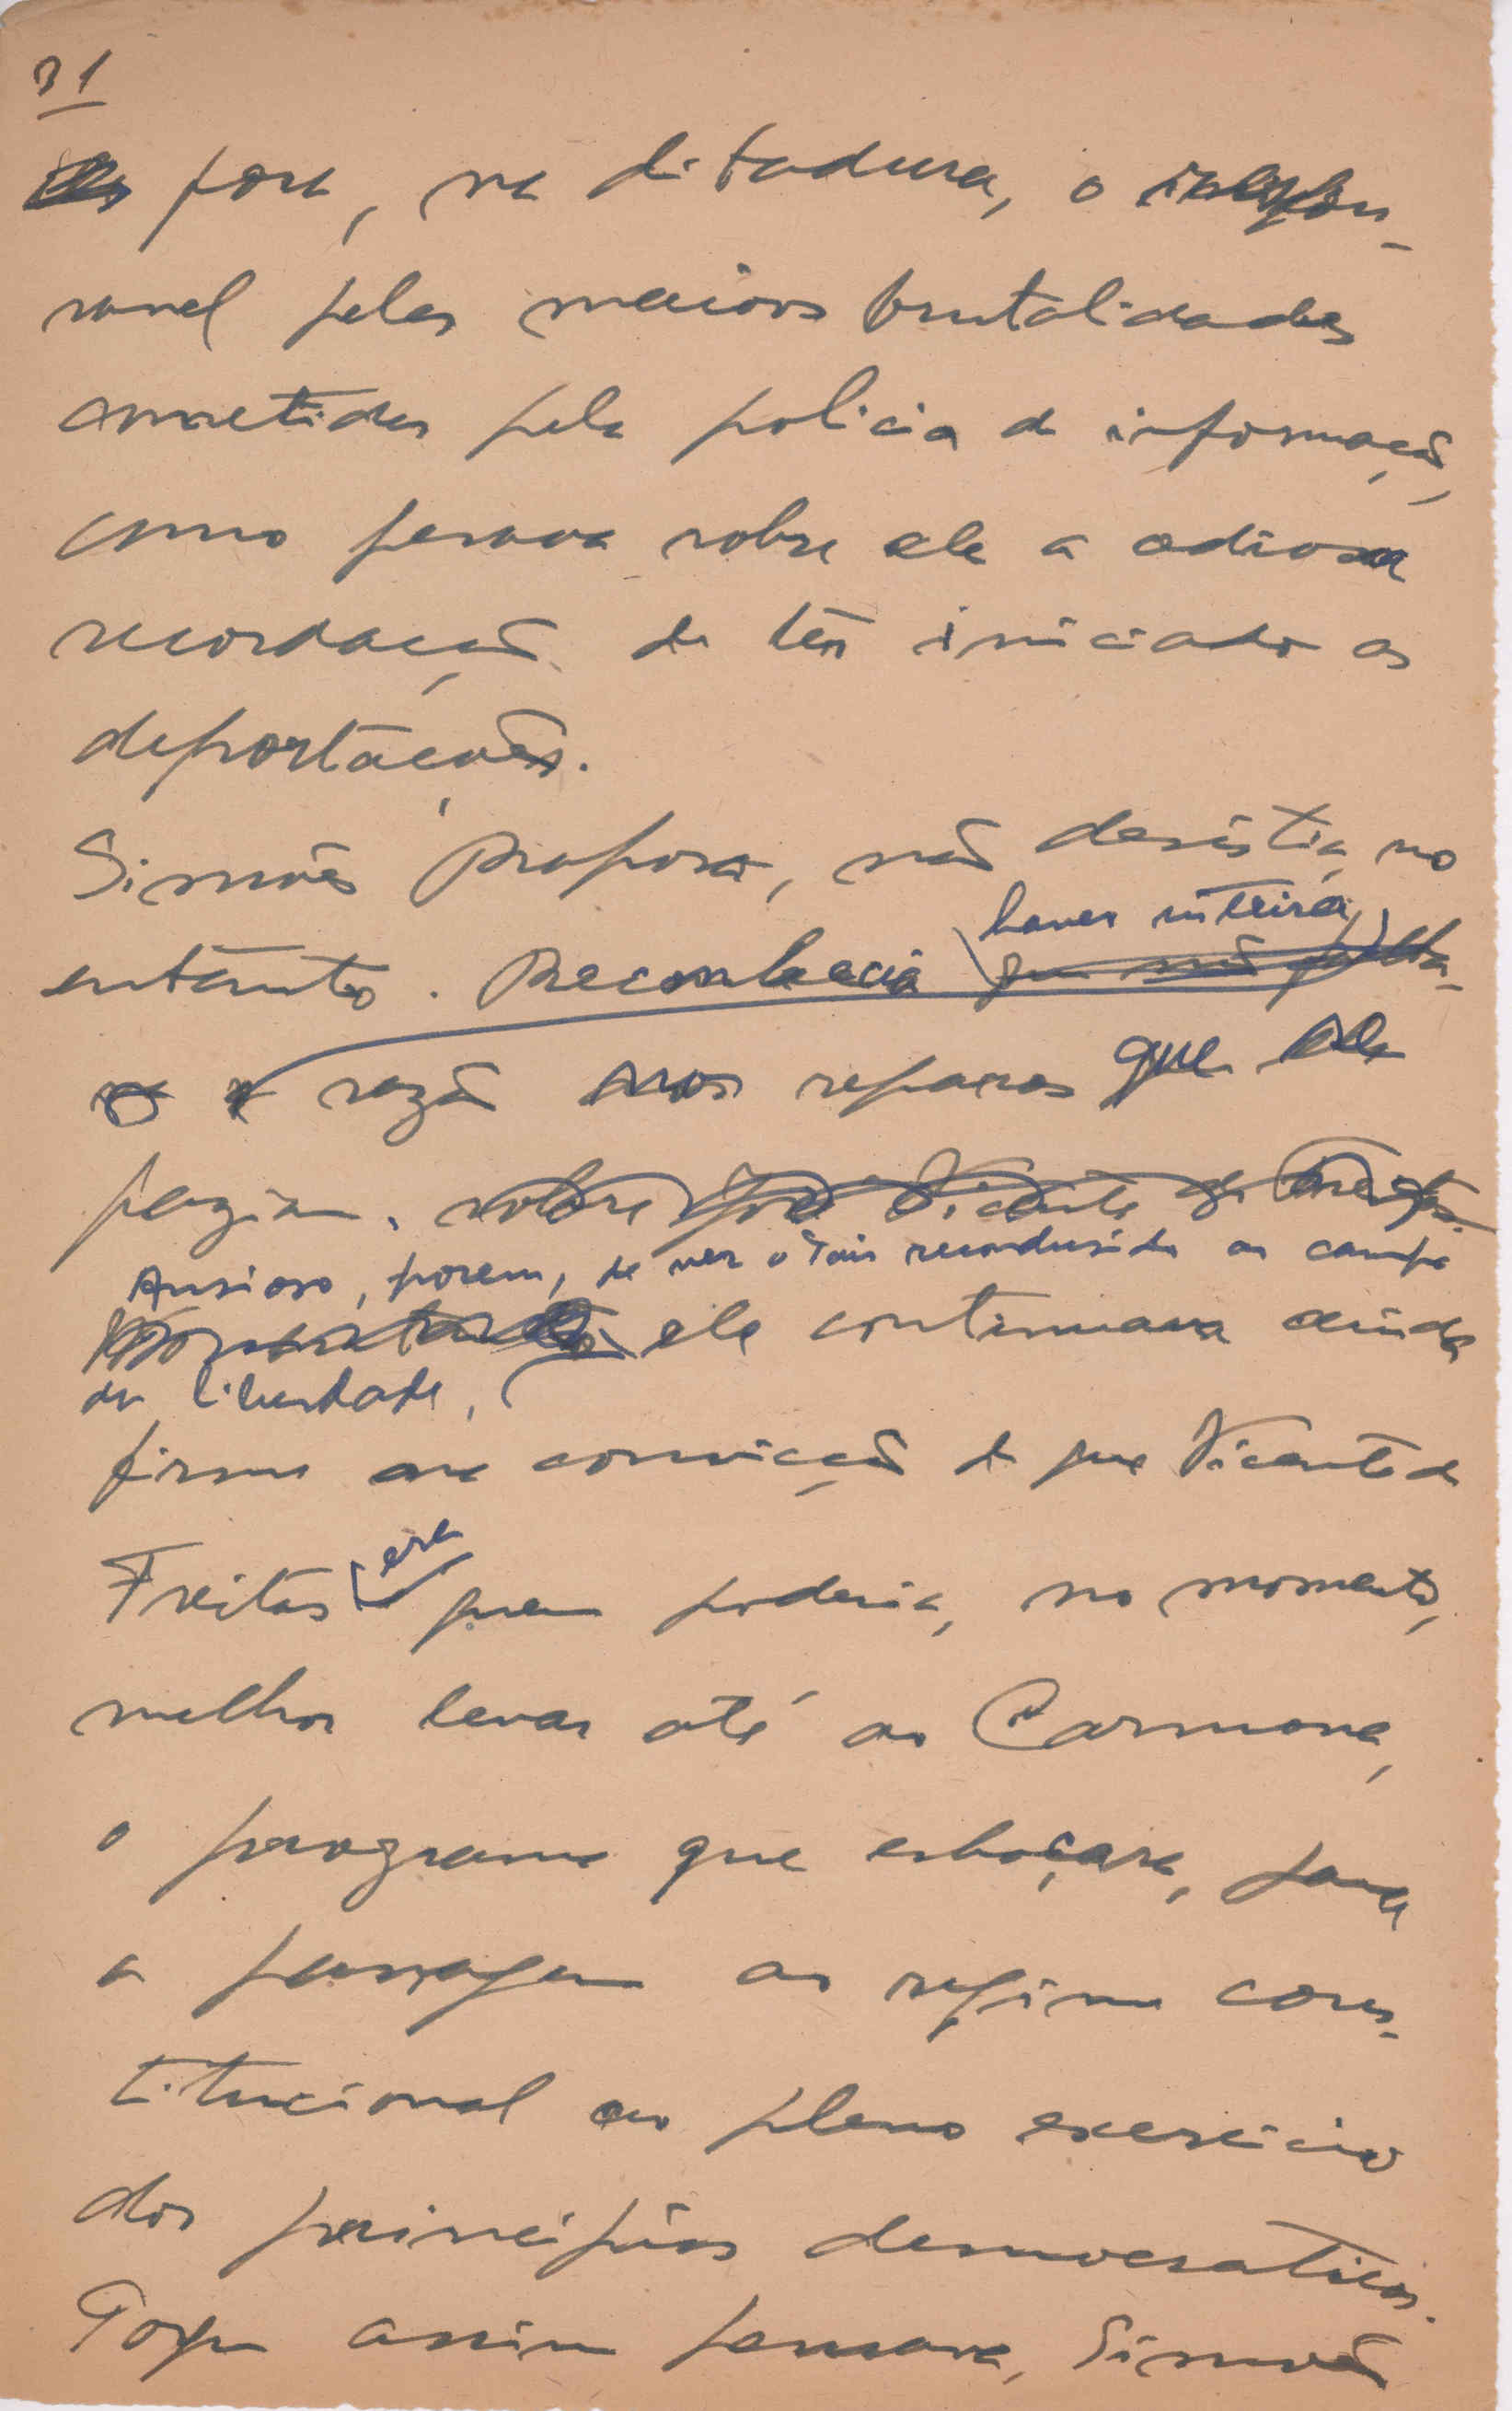 31
fora, na ditadura, o respon-
savel pelas maiores brutalidades
cometidas pela policia de informação,
como pesava sobre ele a odiosa
recordação de têr iniciado as
deportações.
Simões Raposo, não desistia, no
haver inteira
entanto. Reconhecia que não falta-
razão nos reparos que lhe
faziam. sobre José Vicente de Freitas.
Ansioso, porem, de ver o País reconduzido ao campo
ele continuava ainda
da liberdade,
firme na convicção de que Vicente de
era
Freitas quem poderia, no momento,
melhor levar até ao Carmona,
o programa que esboçara, para
a passagem ao regime cons-
titucional ao pleno exercicio
dos principios democraticos.
Porque assim pensava, Simões